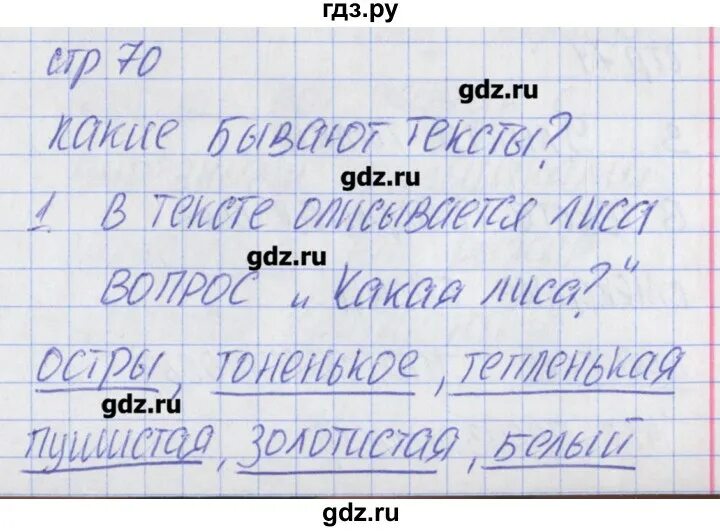 гдз.ру
стр 70
gdz.ru
какие бывают тексты?
gdz.ru
1. В тексте описывается лиса
gdz.ru
вопрос „Какая лиса?“
остры, тоненькое, тепленькая
gdz.ru
пушистая, золотистая, белый
gdz.ru